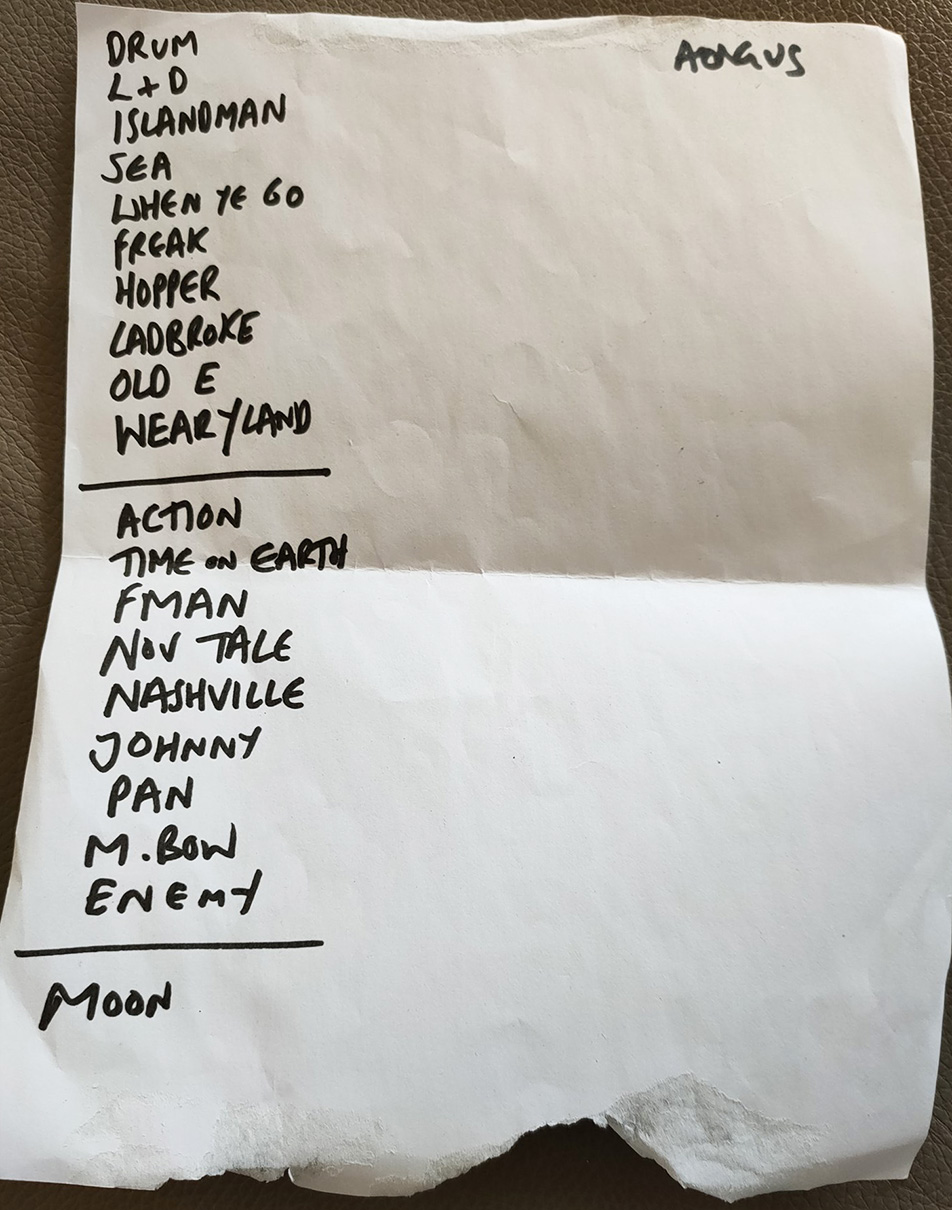 DRUM
AONGUS
L+D
ISLANDMAN
SEA
WHEN YE GO
FREAK
HOPPER
LADBROKE
OLD E
WEARYLAND
ACTION
TIME ON EARTH
FMAN
NOV TALE
NASHVILLE
JOHNNY
PAN
M.BOW
ENEMY
MOON